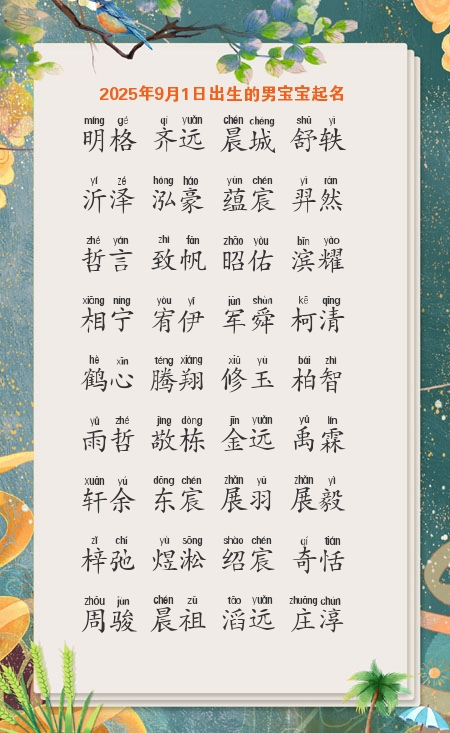 2025年9月1日出生的男宝宝起名
míng gé qí yuǎn chén chéng shū yì
明格 齐远 晨城 舒轶
yí zé hóng háo yùn chén yì rán
沂泽 泓豪 蕴宸 羿然
zhé yán zhì fān zhāo yòu bīn yào
哲言 致帆 昭佑 滨耀
xiāng níng yòu yī jūn shùn kē qīng
相宁 宥伊 军舜 柯清
hè xīn téng xiáng xiū yù bǎi zhì
鹤心 腾翔 修玉 柏智
yǔ zhé jìng dòng jīn yuǎn yǔ lín
雨哲 敬栋 金远 禹霖
xuān yú dōng chén zhǎn yǔ zhǎn yì
轩余 东宸 展羽 展毅
zǐ chí yù sōng shào chén qí tián
梓弛 煜淞 绍宸 奇恬
zhōu jùn chén zǔ tāo yuǎn zhuāng chún
周骏 晨祖 滔远 庄淳